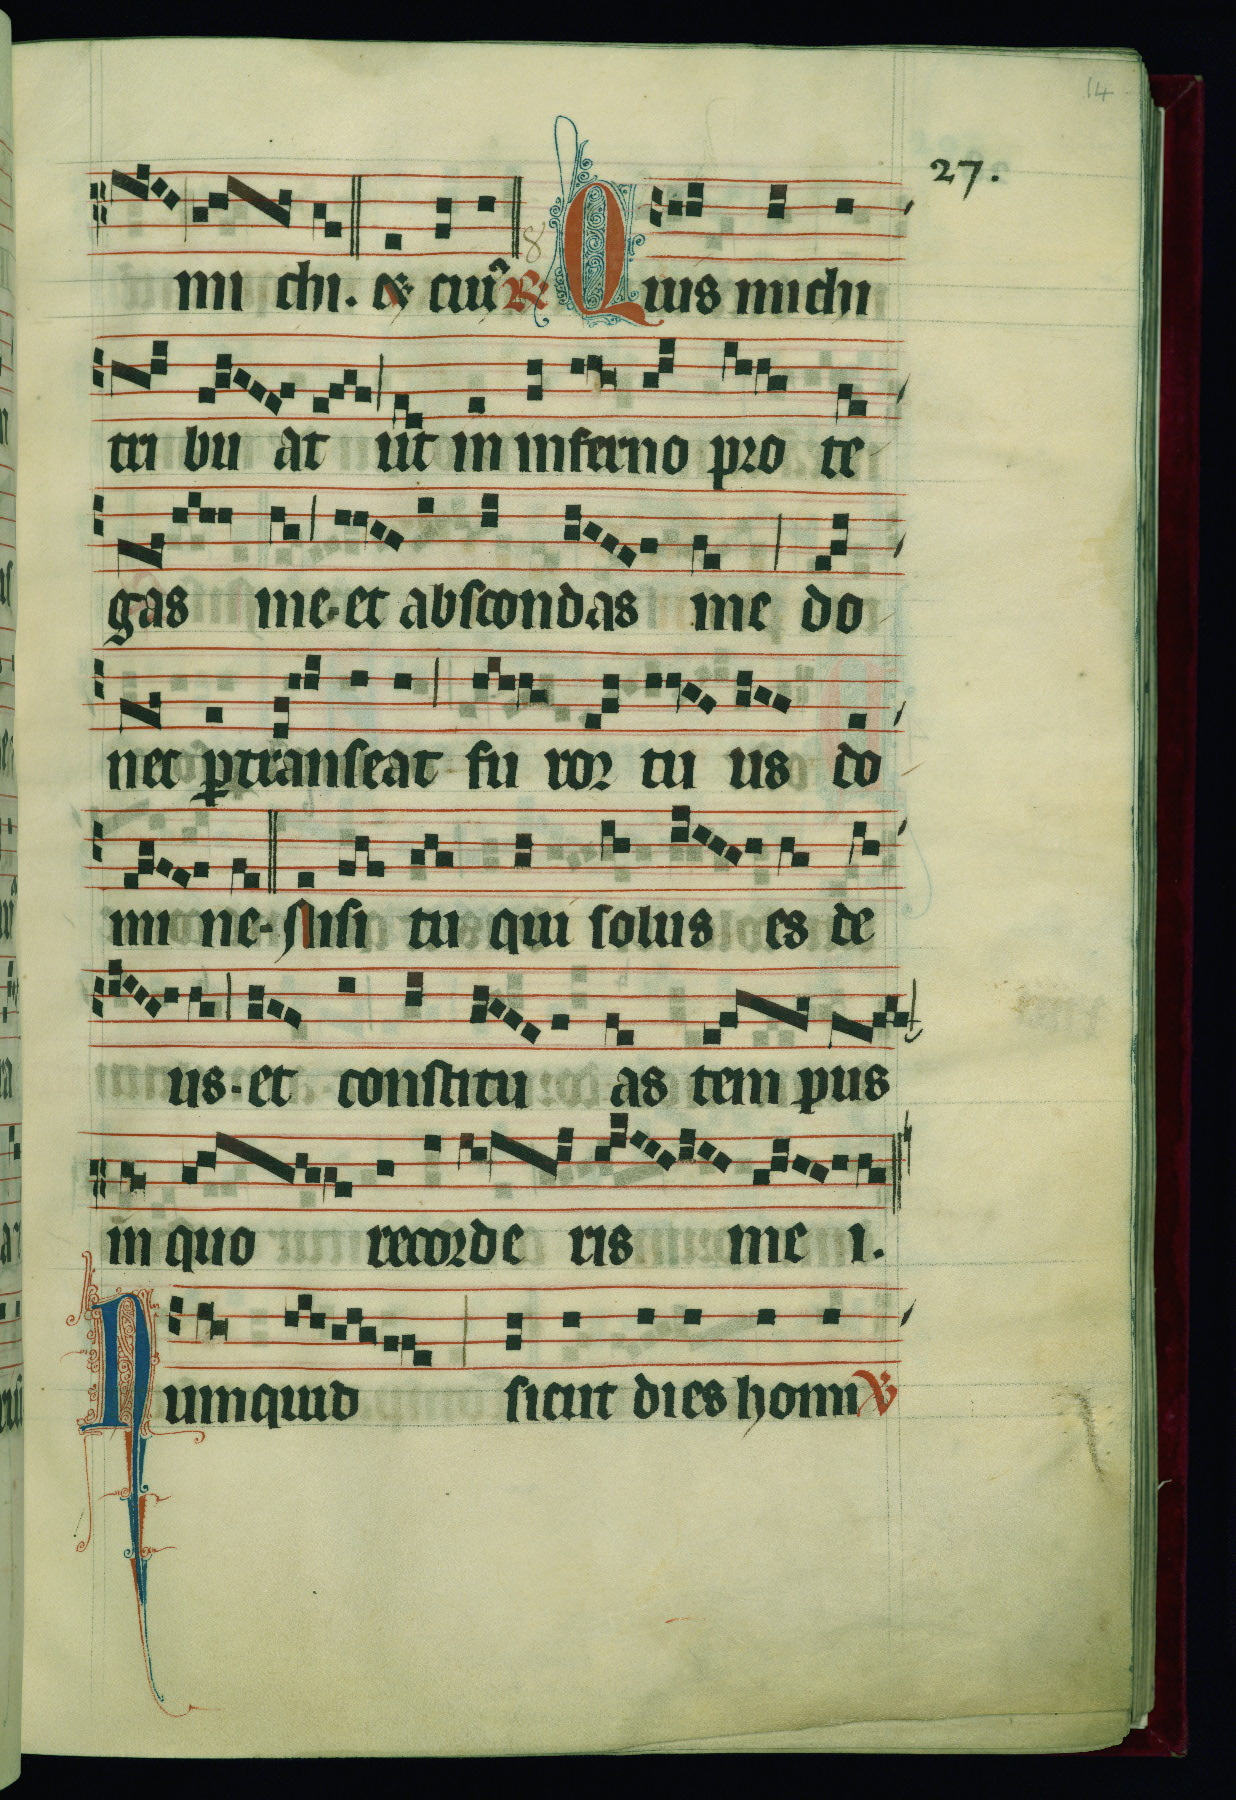 14
27.
mi chi. Et cui⁹ R Quis michi
8
tri bu at ut in inferno pro te
gas me. et abscondas me do
nec ꝑtranseat fu ror tu us do
mi ne. Nisi tu qui solus es de
us. et constitu as tem pus
in quo recorde ris me i.
Numquid sicut dies homi V